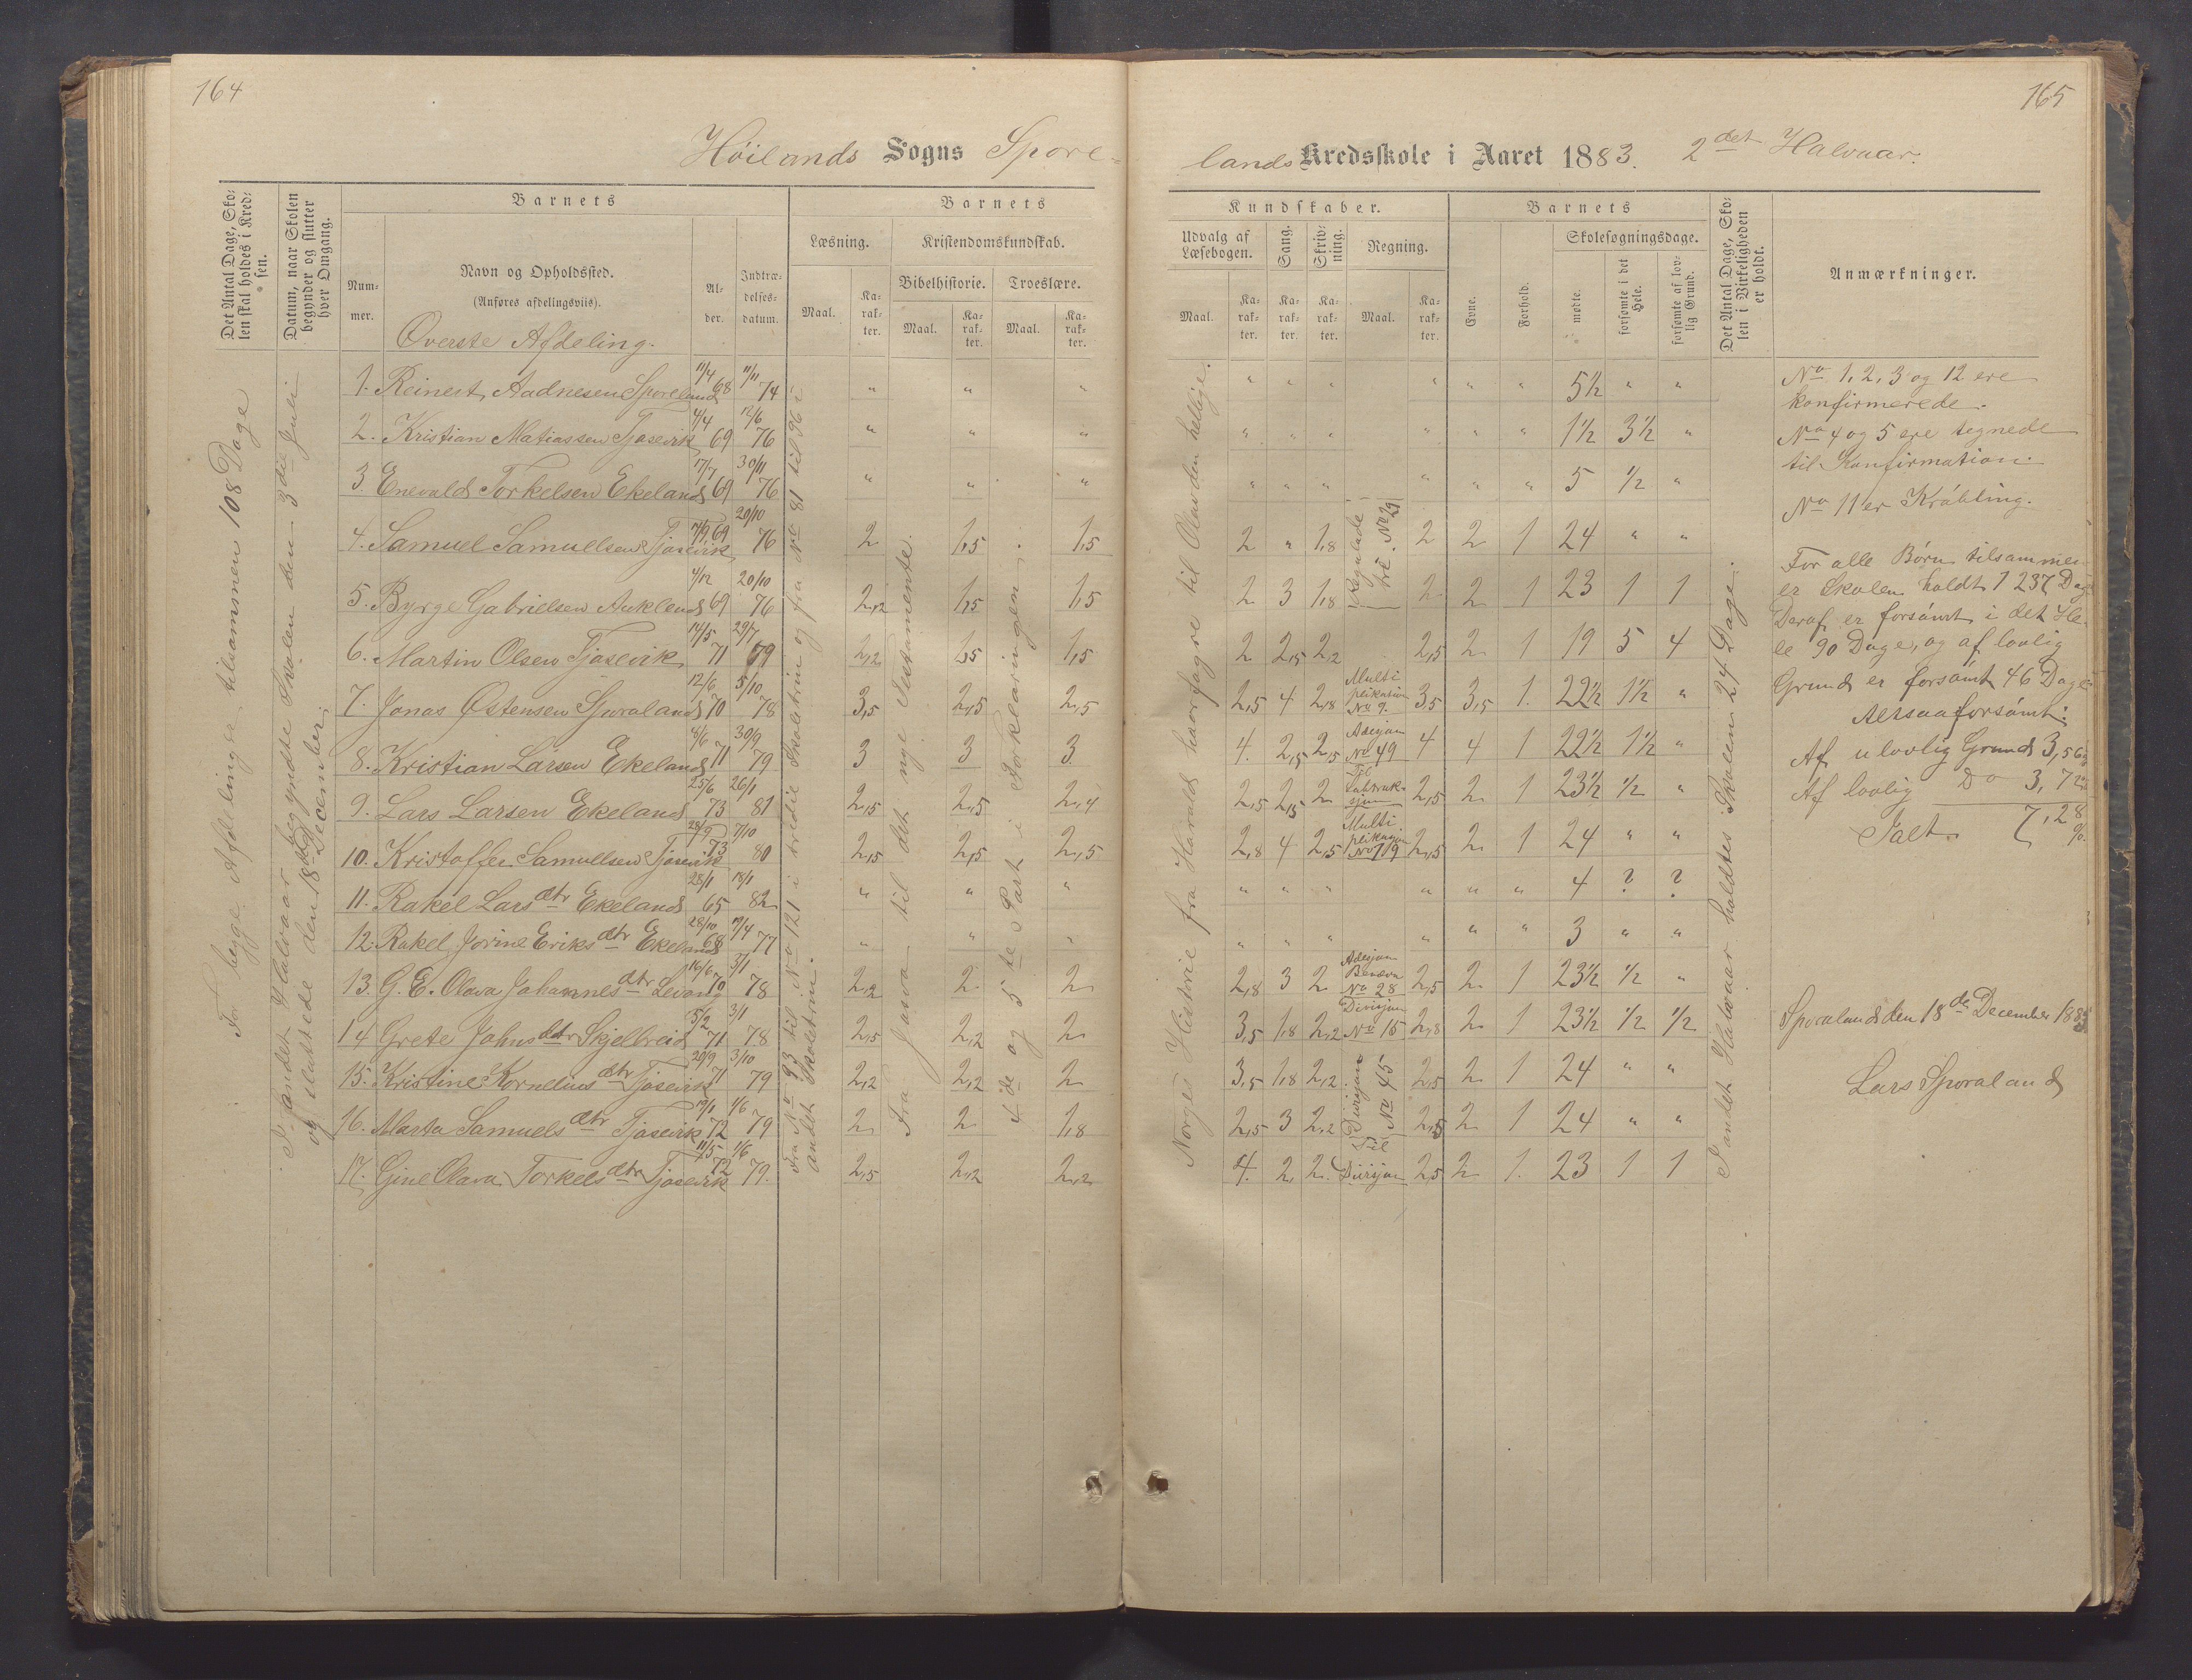 164
Höilands Sogns Spore-
Det Antal Dage, Sko-
len skal holdes i Kred-
sen.
Datum, naar Skolen
begynder og slutter
hver Omgang.
Barnets
Barnets
Num-
mer.
Navn og Opholdssted.
(Anføres afdelingsviis).
Al-
der.
Indtræ-
delses-
datum.
Læsning.
Kristendomskundskab.
Bibelhistorie.
Troeslære.
Maal.
Ka-
rak-
ter.
Maal.
Ka-
rak-
ter.
Maal.
Ka-
rak-
ter.
Överste Afdeling.
For begge Afdelinger tilsammen 108 Dage
I andet Halvaar begyndte Skolen den 3die Juli
og sluttede den 18de December.
Fra No 93 til No 121 i tredie Skoletrin og fra No 81 til 96 i
andet Skoletrin.
Fra Jasva til det nye Testamente.
4de og 5te Part i Forklaringen
1. Reinert Aadnesen Sporeland 11/4 68 11/11 74 " " "
2. Kristian Matiassen Tjosevik 4/4 69 12/6 76 " " "
3 Enevald Torkelsen Ekeland 17/7 69 30/11 76 " " "
4. Samuel Samuelsen Tjosevik 7/9 69 20/10 76 2 1,5 1,5
5. Byrge Gabrielsen Auklend 4/12 69 20/10 76 2,2 1,5 1,5
6. Martin Olsen Tjosevik 14/5 71 29/7 79 2,2 1,5 1,5
7. Jonas Østensen Sporaland 12/6 70 5/10 78 3,5 2,5 2,5
8. Kristian Larsen Ekeland 8/6 71 30/9 79 3 3 3
9. Lars Larsen Ekeland 25/6 73 26/1 81 2,5 2,5 2,4
10. Kristoffer Samuelsen Tjosevik 28/9 73 7/10 80 2,5 2,5 2,5
11. Rakel Larsdtr Ekeland 28/1 65 18/1 82 " " "
12. Rakel Jorine Eriksdtr Ekeland 28/10 68 19/4 77 " " "
13. G. E. Olava Johannesdtr Levang 16/6 70 3/1 78 2,2 2 2
14 Grete Johnsdtr Skjelbreid 5/2 71 3/1 78 2,5 2,2 2
15. Kristine Korneliusdtr Tjosevik 20/9 71 3/10 79 2,2 2,2 2
16. Marta Samuelsdtr Tjosevik 19/1 72 1/6 79 2 2 1,8
17. Gine Olava Torkelsdtr Tjosevik 11/5 72 1/6 79. 2,5 2,2 2,2
165
lands Kredsskole i Aaret 1883. 2det Halvaar.
Kundskaber.
Barnets
Udvalg af
Læsebogen.
Sang.
Skriv-
ning.
Regning.
Maal.
Ka-
rak-
ter.
Ka-
rak-
ter.
Ka-
rak-
ter.
Maal.
Ka-
rak-
ter.
Evne.
Forhold.
Skolesøgningsdage.
mødte.
forsømte i det
Hele.
forsømte af lov-
lig Grund.
Det Antal Dage, Sko-
len i Virkeligheden
er holdt.
Anmærkninger.
Norges Historie fra Harald haarfagre til Olav den hellige.
I andet Halvaar holdtes Skolen 24 Dage.
" " " " " " 5½ " "
" " " " " " 1½ 3½ "
" " " " " " 5 ½ "
2 " 1,8 Reguladetri. No 29 2 2 1 24 " "
2 3 1,8 2 2 1 23 1 1
2 2,5 2,2 2,5 2 1 19 5 4
2,5 4 2,8 Multiplikation No 9. 3,5 3,5 1. 22½ 1½ "
4. 2,5 2,5 Adisjon No 49 4 4 1 22½ 1½ "
2,5 2,5 2 Til Subtraksjon 2,5 2 1 23½ ½ "
2,8 4 2,5 Multiplikasjon No 119 2,5 2 1 24 " "
" " " " " " 4 ? ?
" " " " " " 3 " "
2,8 3 2 Adisjon Benævn No 28 2,5 2 1 23½ ½ "
3,5 1,8 2,2 Divisjon No 15 2,8 2 1 23½ ½ ½
3,5 1,8 2,2 Divisjon No 45 2,5 2 1 24 " "
2,5 3 2,2 2,5 2 1 24 " "
4. 2, 2. Til Divisjon 2,5 2 1. 23 1 1
No 1, 2, 3 og 12 ere
konfirmerede.
No 4 og 5 ere tegnede
til Konfirmation.
No 11 er Kröbling.
For alle Börn tilsammen
er Skolen holdt 1 237 Dage
Deraf er forsömt i det He-
le 90 Dage, og af lovlig
Grund er forsömt 46 Dage
Altsaa forsömt:
Af ulovlig Grund 3,56
Af lovlig Do 3,72
Ialt 7,28 %.
Sporaland den 18de December 1883
Lars Sporaland